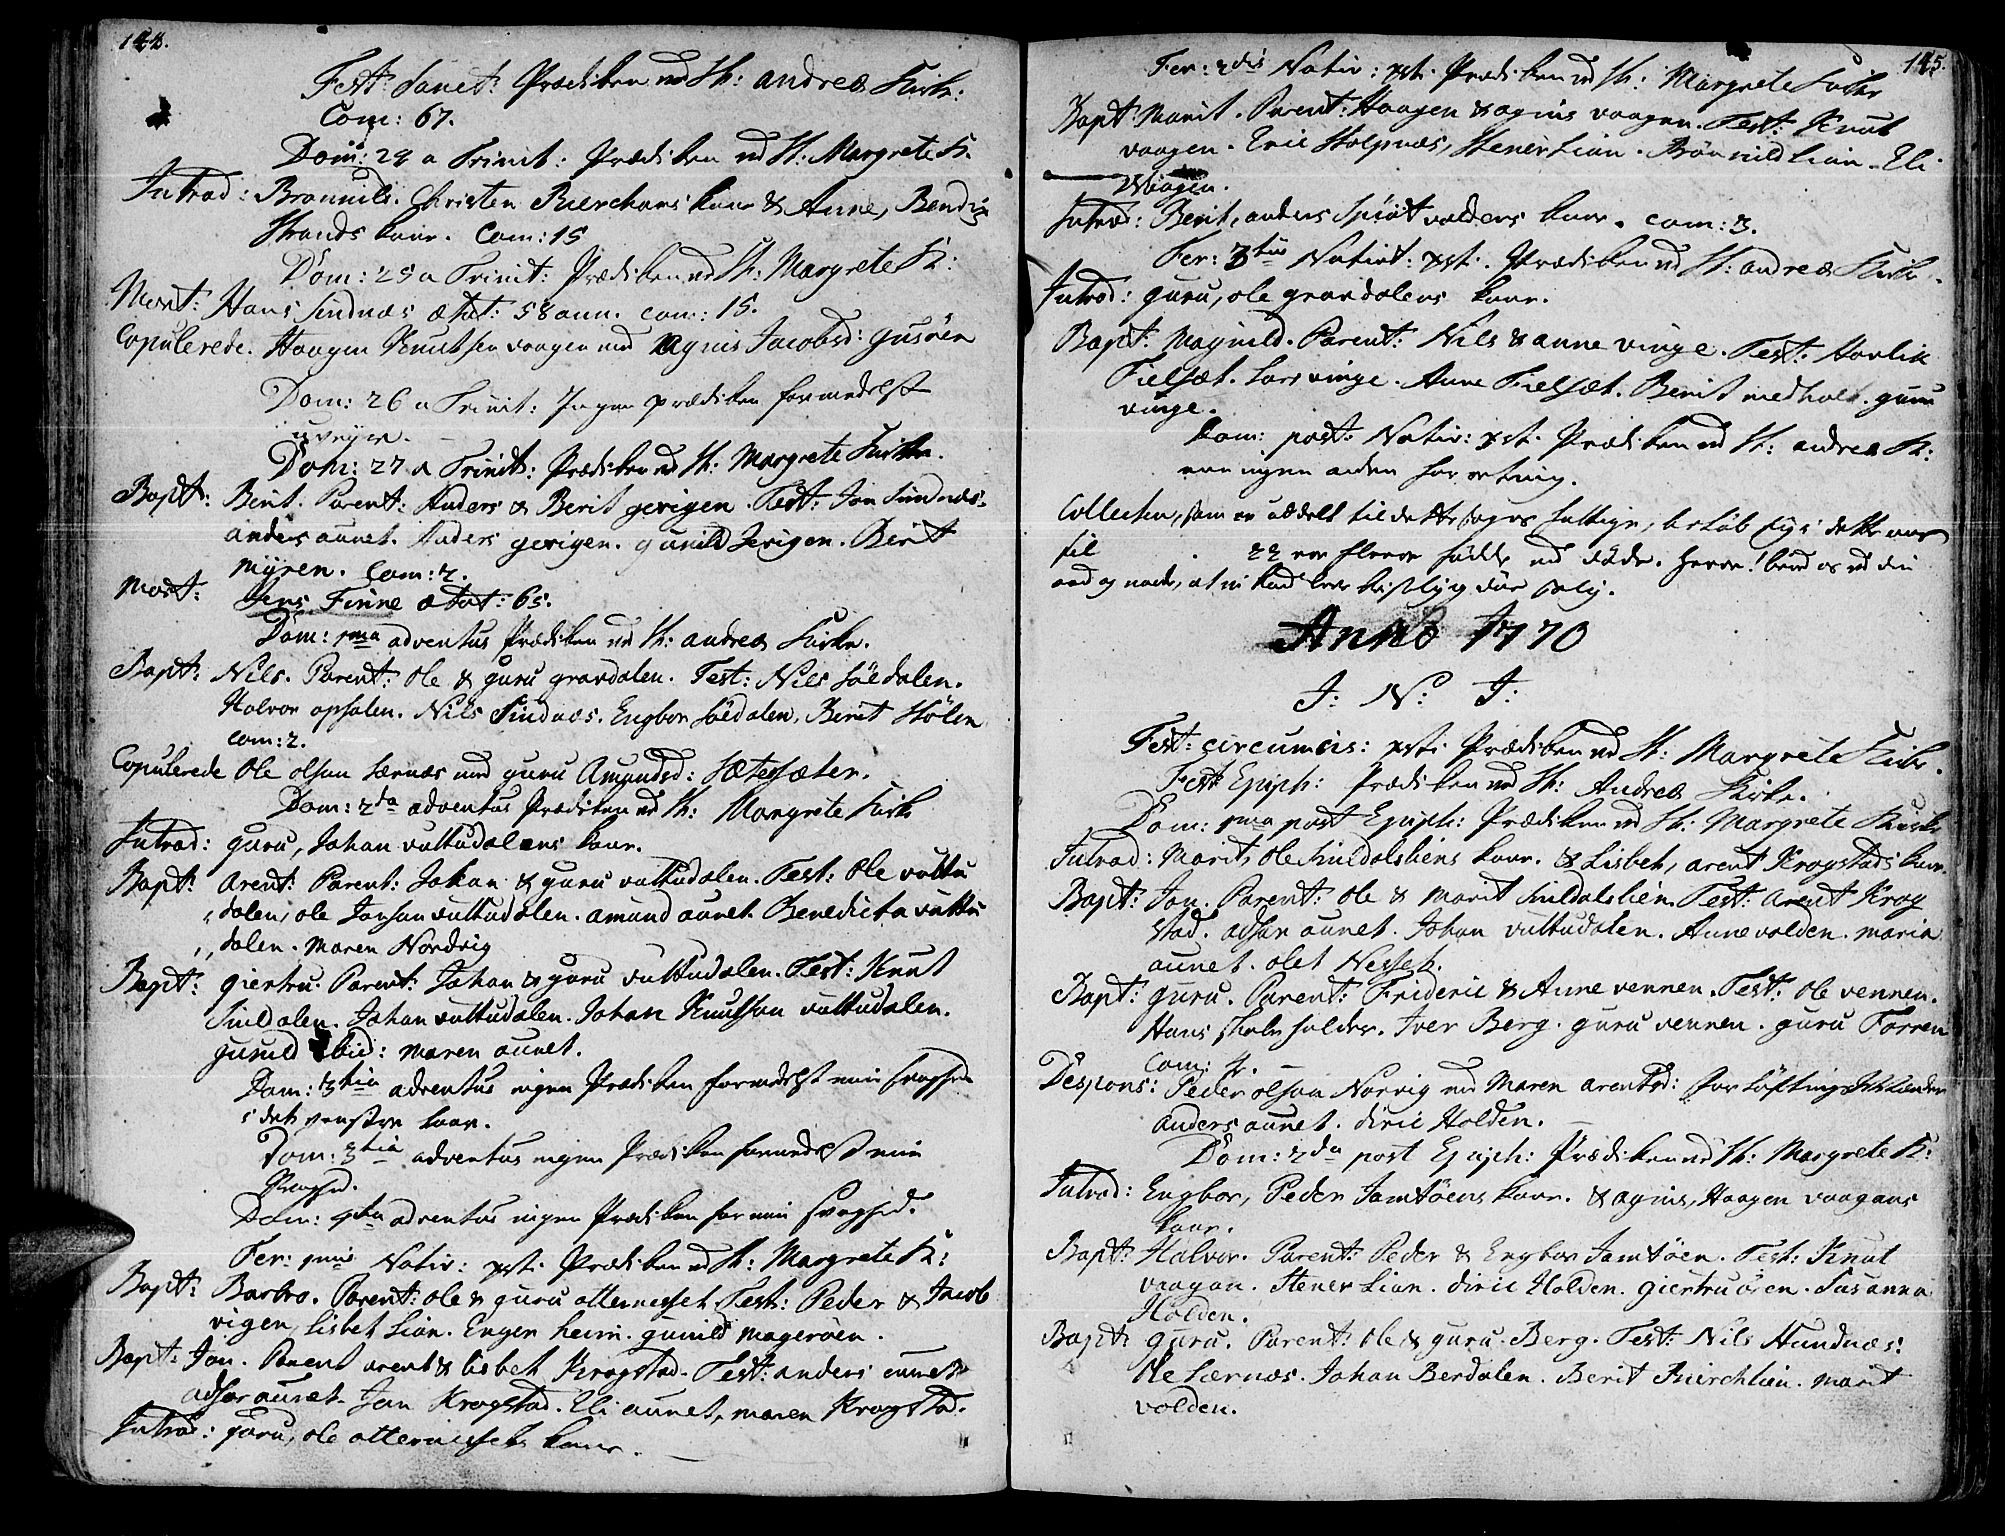 144.
Fest: Sanct: Prædiken ved St: Andreæ Kirke:
Com: 67.
Dom: 24 a Trinit: Prædiken ved St: Margrete K.
Introd: Brønnild. Christen kone & Anne, Bendix
Strands kone. Com: 15
Dom: 25 a Trinit: Prædiken ved St: Margrete K:
Mort: Hans Sindnæs ætat: 58 ann. com: 15.
Copulerede. Haagen Knutsen vaagen med Agnis Jacobsd: Gusøen
Dom: 26 a Trinit: Ingen prædiken formedelst
uveyr.
Dom: 27 a Trinit: Prædiken ved St: Margrete Kirke.
Bapt: Berit. Parent: Anders & Berit gerigen. Test: Jon Sindnæs.
anders aunet. Anders gerigen. gunild Jerigen. Berit
myren. Com: 2.
Mort: Jens Finne ætat: 65.
Dom: 1ma adventus Prædiken ved St: andreæ Kirke.
Bapt: Nils. Parent: ole & guru gravdalen. Test: Nils Söedalen.
Halvor opsalen. Nils Sindnæs. Engbor Söedalen, Berit Hölen
com: 2.
Copulerede Ole olsen Lærnæs med guru Amundsd: Sætersæter.
Dom: 2da adventus Prædiken ved St: Margrete Kirk
Introd: guru, Johan vuttudalens kone.
Bapt: Arent: Parent: Johan & guru vuttudalen. Test: Ole vuttu
dalen, ole Jonsen vuttudalen. amund aunet. Benedicta vuttu
dalen. maren Nordvig
Bapt: giertru. Parent: Johan & guru vuttudalen. Test: Knut
Suldalen. Johan vuttudalen. Johan Knutsen vuttudalen.
gunild ibid: maren aunet.
Dom: 3tia adventus ingen Prædiken formedelst min svaghed
i det venstre laar.
Dom: 3tia adventus ingen Prædiken formedelst min
svaghed.
Dom: 4ta adventus ingen Prædiken for min svaghed.
Fer: 1mi Nativ: xsti. Prædiken ved St: Margrete K:
Bapt: Barbro. Parent: ole & guru otternesset. Test: Peder & Jacob
vigen, Lisbet Lian. Engen heim. gunild magerøen.
Bapt: Jon. Parent arent & lisbet Krogstad. Test: anders aunet
adser aunet. Jon Krogstad. Eli aunet, maren Krogstad.
Introd: guru, ole otternessets kone.
145.
Fer: 2di Nativ: xsti. Prædiken ved St: Margrete Kirke
Bapt: Marit. Parent: Haagen & agnis vaagen. Test: Knut
vaagen. Eric Holsnæs, Stener Lian. Brönnild Lian. Eli
Vaagen.
Introd: Berit, anders Spiötvoldens kone. com: 3.
Fer: 3tiæ Nativit: xsti. Prædiken ved St: andreæ Kirke.
Introd: guru, ole gravdalens kone.
Bapt: Magnild. Parent: Nils & anne vinge. Test: Hovlik
Fielsæt. Lars vinge. Anne Fielsæt. Berit medholt. guru
vinge.
Dom: post: Nativ: xsti. Prædiken ved St: andreæ K:
men ingen anden forretning.
Collecten, som er uddelt til dette sogns fattige, beløb sig i dette aar
til 22 flere fødte end döde. Herre! bevar os ved din
aand og naade, at vi kand leve kristelig døe salig.
Anno 1770
J: N: J:
Fest: circumcis: xsti. Prædiken ved St: Margrete Kirke.
Fest Epiph: Prædiken ved St: Andreæ Kirke.
Dom: 1ma post Epiph: Prædiken ved St: Margrete Kirke
Introd: Marit, Ole Suldalsliens kone. & Lisbet, arent Krogstads kone.
Bapt: Jon. Parent: Ole & Marit Suldalslien. Test: Arent Krog
stad. adser aunet. Johan vuttudalen. Anne volden. maria
aunet. olet Nesset.
Bapt: guru. Parent: Frideric & Anne vennen. Test: ole vennen.
Hans . Iver Berg. guru vennen. guru Forren
com: 4.
Despons: Peder olsen Norvig med Maren arentsd: Forlöftingsmænden
anders aunet. diric Holden.
Dom: 2da post Epiph: Prædiken ved St: Margrete K:
Introd: Engbor, Peder Jamtöens kone. & agnis, Haagen vaagans
kone.
Bapt: Halvor. Parent: Peder & Engbor Jamtöen. Test: Knut
vaagan. Stener Lian. diric Holden. giertru öien. Susanna
Holden.
Bapt: guru. Parent: ole & guru Berg. Test: Nils Hundnæs:
Ole Lærnæs. Johan Berdalen. Berit Birchlien. marit
volden.